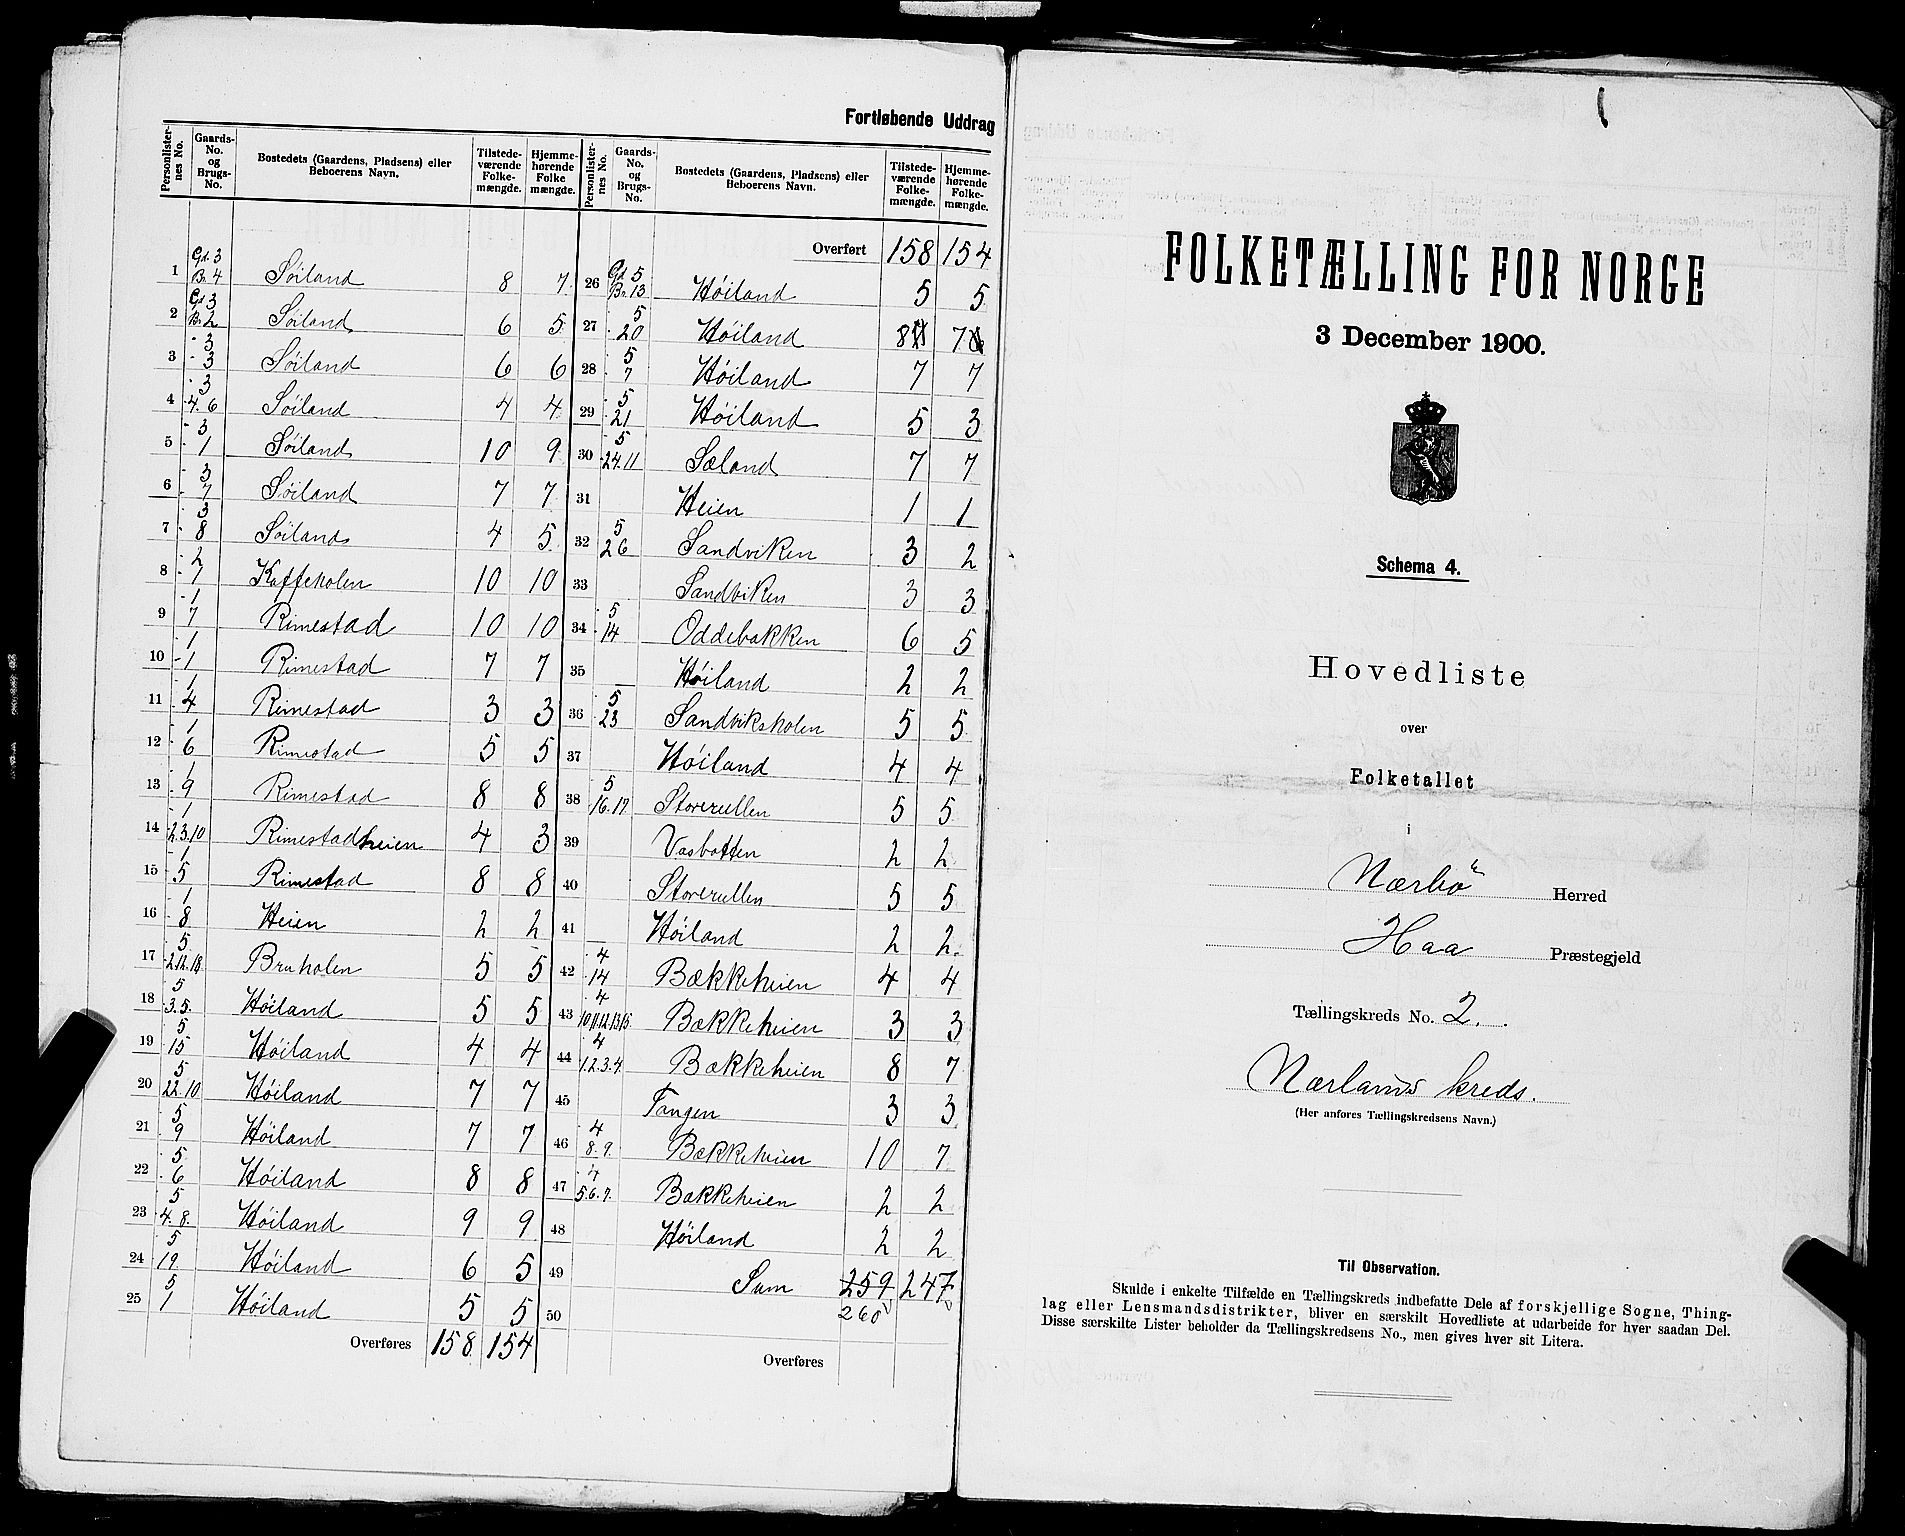 Fortløbende Uddrag
Personlister-nes No. | Gaards-No. og Brugs-No. | Bostedets (Gaardens, Pladsens) eller Beboerens Navn. | Tilstede-værende Folke-mængde. | Hjemme-hørende Folke mængde.
1 | Gd. 3 Br. 4 | Söiland | 8 | 7
2 | Gd. 3 Br. 2 | Söiland | 6 | 5
3 | 3 3 | Söiland | 6 | 6
4 | 3 4.6 | Söiland | 4 | 4
5 | 3 1 | Söiland | 10 | 9
6 | 3 7 | Söiland | 7 | 7
7 | 3 8 | Söiland | 4 | 5
8 | 2 7 | Kaffeholen | 10 | 10
9 | 1 7 | Rimestad | 10 | 10
10 | 1 1 | Rimestad | 7 | 7
11 | 1 4 | Rimestad | 3 | 3
12 | 1 6 | Rimestad | 5 | 5
13 | 1 9 | Rimestad | 8 | 8
14 | 1 2.3.10 | Rimestadheien | 4 | 3
15 | 1 5 | Rimestad | 8 | 8
16 | 1 8 | Heien | 2 | 2
17 | 5 2.12.18 | Bruholen | 5 | 5
18 | 5 3.5. | Höiland | 5 | 5
19 | 5 15 | Höiland | 4 | 4
20 | 5 22.10 | Höiland | 7 | 7
21 | 5 9 | Höiland | 7 | 7
22 | 5 6 | Höiland | 8 | 8
23 | 5 4.8. | Höiland | 9 | 9
24 | 5 19 | Höiland | 6 | 5
25 | 5 1 | Höiland | 5 | 5
Overføres 158 154
Personlister-nes No. | Gaards-No. og Brugs-No. | Bostedets (Gaardens, Pladsens) eller Beboerens Navn. | Tilstede-værende Folke-mængde. | Hjemme-hørende Folke-mængde.
Overført 158 154
26 | Gd. 5 Br. 13 | Höiland | 5 | 5
27 | 5 20 | Höiland | 8 | 7
28 | 5 7 | Höiland | 7 | 7
29 | 5 21 | Höiland | 5 | 3
30 | 5 24.11 | Sæland | 7 | 7
31 | Heien | 1 | 1
32 | 5 26 | Sandviken | 3 | 2
33 | Sandviken | 3 | 3
34 | 5 14 | Oddebakken | 6 | 5
35 | Höiland | 2 | 2
36 | 5 23 | Sandviksholen | 5 | 5
37 | Höiland | 4 | 4
38 | 5 16.17 | Storerullen | 5 | 5
39 | Vasbotten | 2 | 2
40 | Storerullen | 5 | 5
41 | Höiland | 2 | 2.
42 | 4 14 | Bækkeheien | 4 | 4
43 | 4 10.11.12.13.15. | Bækkeheien | 3 | 3
44 | 4 1.2.3.4 | Bækkeheien | 8 | 7
45 | Tangen | 3 | 3
46 | 4 8.9. | Bækkeheien | 10 | 7
47 | 4 5.6.7. | Bækkeheien | 2 | 2
48 | Höiland | 2 | 2
49 | Sum | 259 | 247
50 | 260
Overføres
FOLKETÆLLING FOR NORGE
3 December 1900.
Schema 4.
Hovedliste
over
Folketallet
i
Nærbö Herred
Haa Præstegjeld
Tællingskreds No. 2.
Nærlands kreds.
(Her anføres Tællingskredsens Navn.)
Til Observation.
Skulde i enkelte Tilfælde en Tællingskreds indbefatte Dele af forskjellige Sogne, Thing-
lag eller Lensmandsdistrikter, bliver en særskilt Hovedliste at udarbeide for hver saadan Del.
Disse særskilte Lister beholder da Tællingskredsens No., men gives hver sit Litera.